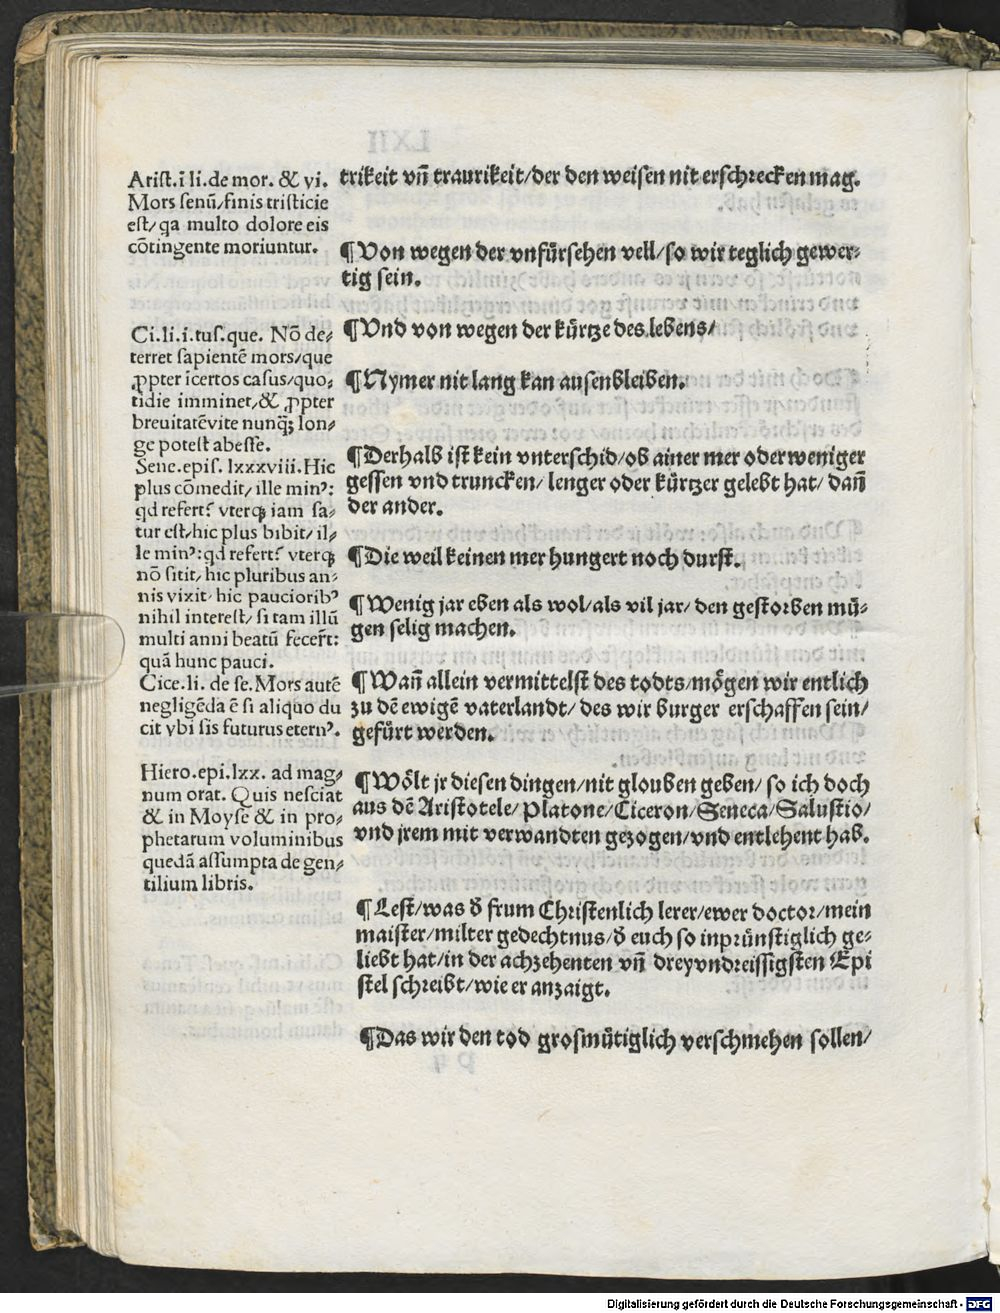 Arist.ī li.de mor. & vi.
Mors senū/finis tristicie
est/qa multo dolore eis
cōtingente moriuntur.
Ci.li.i.tus.que. Nō de⸗
terret sapientē mors/que
ꝓpter īcertos casus/quo⸗
tidie imminet/& ꝓpter
breuitatēvite nunqꝫ lon⸗
ge potest abesse.
Sene.epis. lxxxviii.Hic
plus cōmedit/ ille minꝰ:
qd refert? vterqꝫ iam sa⸗
tur est/hic plus bibit/ il⸗
le minꝰ:qd refert? vterqꝫ
nō sitit/ hic pluribus an⸗
nis vixit/ hic paucioribꝰ
nihil interest/ si tam illū
multi anni beatū fecer̄t:
quā hunc pauci.
Cice.li. de se.Mors autē
negligēda ē si aliquo du
cit vbi sis futurus eternꝰ.
Hiero.epi.lxx. ad mag⸗
num orat. Quis nesciat
& in Moyse & in pro⸗
phetarum voluminibus
quedā assumpta de gen⸗
tilium libris.
trikeit vn̄ traurikeit/der den weisen nit erschrecken mag.
¶Von wegen der vnfürsehen vell/so wir teglich gewer⸗
tig sein.
¶Vnd von wegen der kürtze des lebens/
¶Nymer nit lang kan ausenbleiben.
¶Derhalb ist kein vnterschid/ob ainer mer oder weniger
gessen vnd truncken/ lenger oder kürtzer gelebt hat/ dan̄
der ander.
¶Die weil keinen mer hungert noch durst.
¶Wenig jar eben als wol/als vil jar/ den gestorben mü⸗
gen selig machen.
¶Wan̄ allein vermittelst des todts/mögen wir entlich
zu dē ewigē vaterlandt/ des wir burger erschaffen sein/
gefürt werden.
¶Wölt jr diesen dingen/nit glouben geben/ so ich doch
aus dē Aristotele/Platone/Ciceron/Seneca/Salustio/
vnd jrem mit verwandten gezogen/vnd entlehent hab.
¶Lest/was ð frum Christenlich lerer/ewer doctor/mein
maister/milter gedechtnus/ð euch so inprünstiglich ge⸗
liebt hat/in der achzehenten vn̄ dreyvndreissigsten Epi
stel schreibt/wie er anzaigt.
¶Das wir den tod grosmütiglich verschmehen sollen/
Digitalisierung gefördert durch die Deutsche Forschungsgemeinschaft - DFG